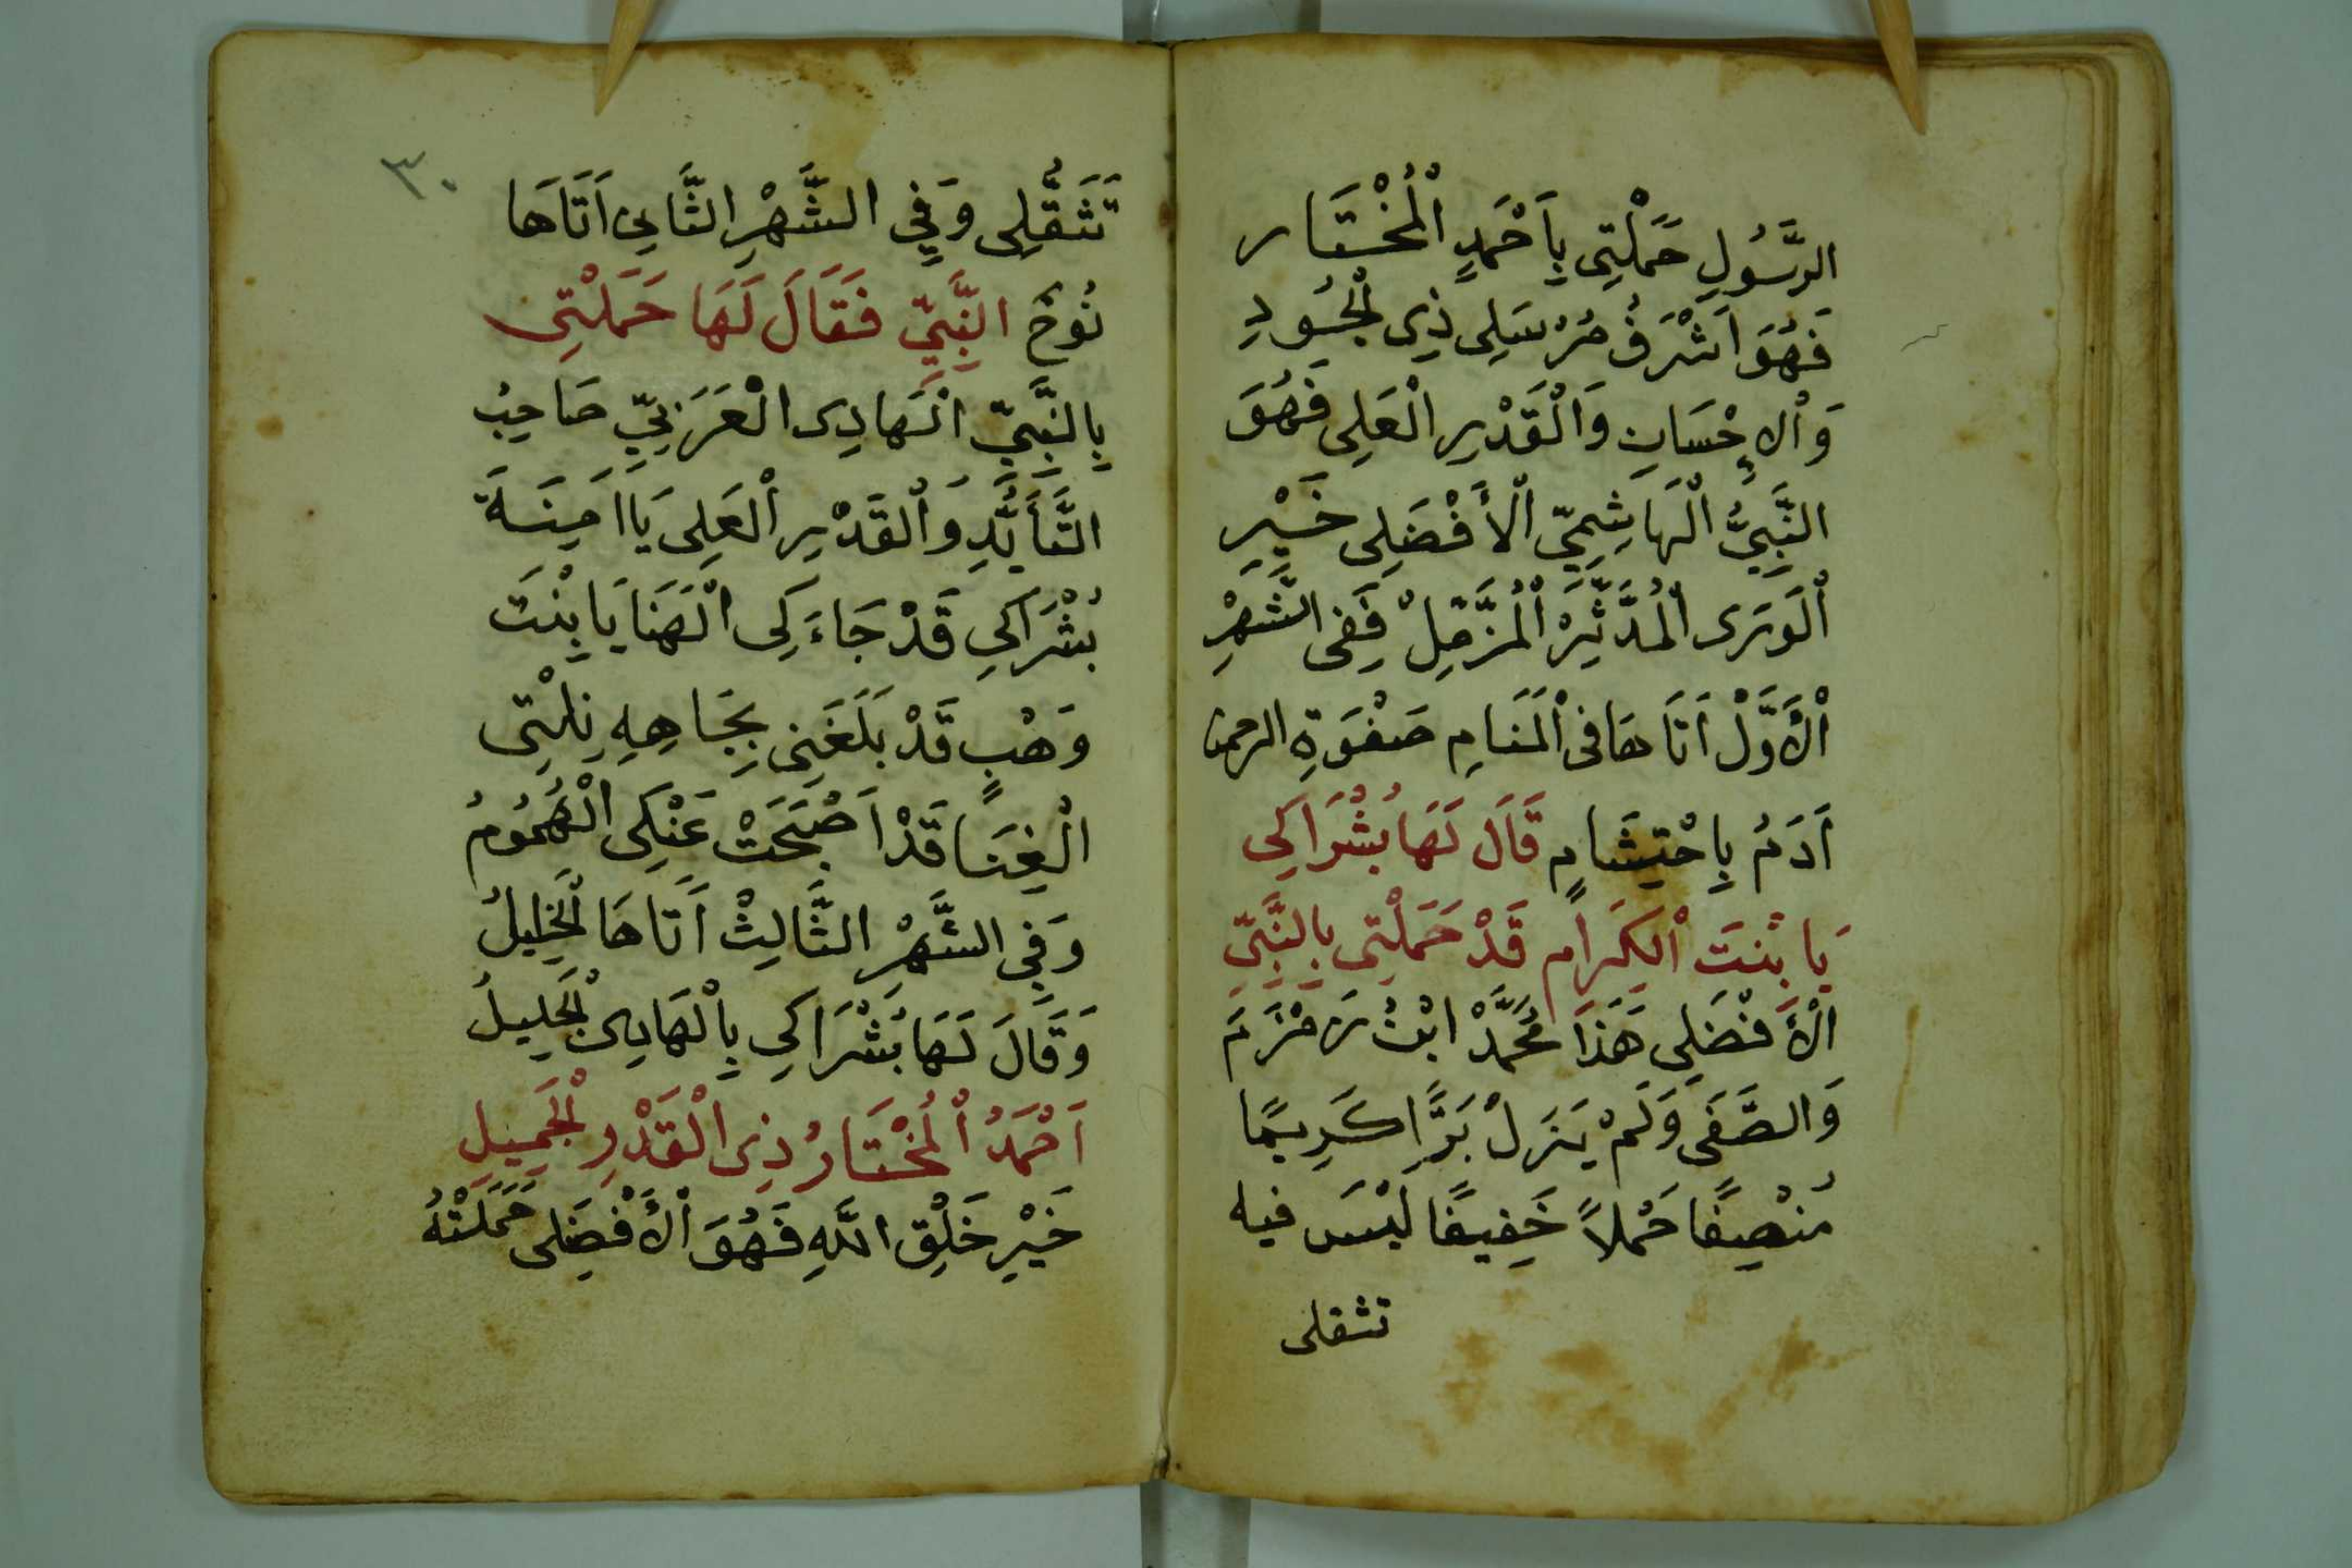 الرَّسُولِ حَمَلْتِى بِاَحْمَدٍ اْلمُخْتَار
فَهُوَ اَشْرَفُ مُرْسَلِى ذِى لْجُودِ
وَاْلاِحْسَانِ وَاْلقَدْرِ اْلعَلِى فَهُوَ
النَّبِيُّ اْلهَاشِمِيّ اْلأَفْضَلِى خَيْرِ
اْلوَرَى اْلمُدَّثِّرْ اْلمُزَّمِّلْ فَفِى الشَّهْرِ
اْلأَوَّلْ اَتَاهَا فى اْلمَنَامِ صَفْوَةِ الرحمن
اَدَمُ بِاِحْتِشَامٍ قَالَ لَهَا بُشْرَاكِي
يَا بْنتَ اْلكِرَامِ قَدْ حَمَلْتِى بِالنَّبِيِّ
اْلأَفْضَلِى هَذَا مُحَمَّدْ ابْنُ زَمْزَمَ
وَالصَّفَى وَلَمْ يَزَلْ بَرًّا كَرِيمًا
مُنْصِفًا حَمْلاً خَفِيفًا لَيْسَ فيه
تثقلى
٣٠
تَثَقُّلِى وَفِي الشَّهْرِ الثَّانِي اَتَاهَا
نُوحُ النَّبِيِّ فَقَالَ لَهَا حَمَلْتِى
بِالنَّبِيِّ الْهَادِى الْعَرَبِيِّ صَاحِبُ
التَّأَيُّدِ وَاْلقَدْرِ اْلعَلِى يَا اَمِنَةَ
بُشْرَاكِي قَدْ جَاءَكِى الْهَنَا يَا بِنْتَ
وَهْبٍ قَدْ بَلَغَنِى بِجَاهِهِ نِلْتِى
الْغِنَا قَدْ اَصْبَحَتْ عَنْكِى الْهُمُومُ
وَفِي الشَّهْرِ الثَّالِثْ اَتَاهَا لْخَلِيلُ
وَقَالَ لَهَا بُشْرَاكِي بِاْلهَادِى لْجَلِيلُ
اَحْمَدُ اْلمُخْتَارُ ذِى الْقَدْرِ لْجَمِيلِ
خَيْرِ خَلْقِ اللّهِ فَهُوَ اْلأَفْضَلِى حَمَلَتْهُ